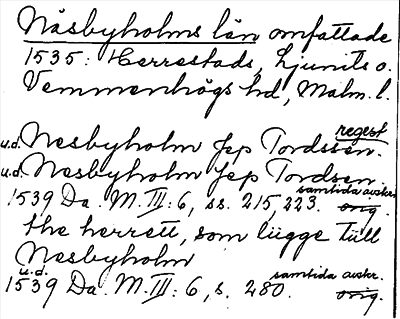 Näsbyholms län omfattade
1535: Herrestads, Ljunits o.
Vemmenhögs hd, Malm. l.
regest
u.d. Nesbyholm Jep Tordssen.
u.d. Nesbyholm Jep Tordsen.
samtida avskr.
1539 Da. M. III: 6, ss. 215, 223. orig.
the herrett, som lügge tüll
Nesbyholm
u.d. samtida avskr.
1539 Da. M. III: 6, s. 280. orig.